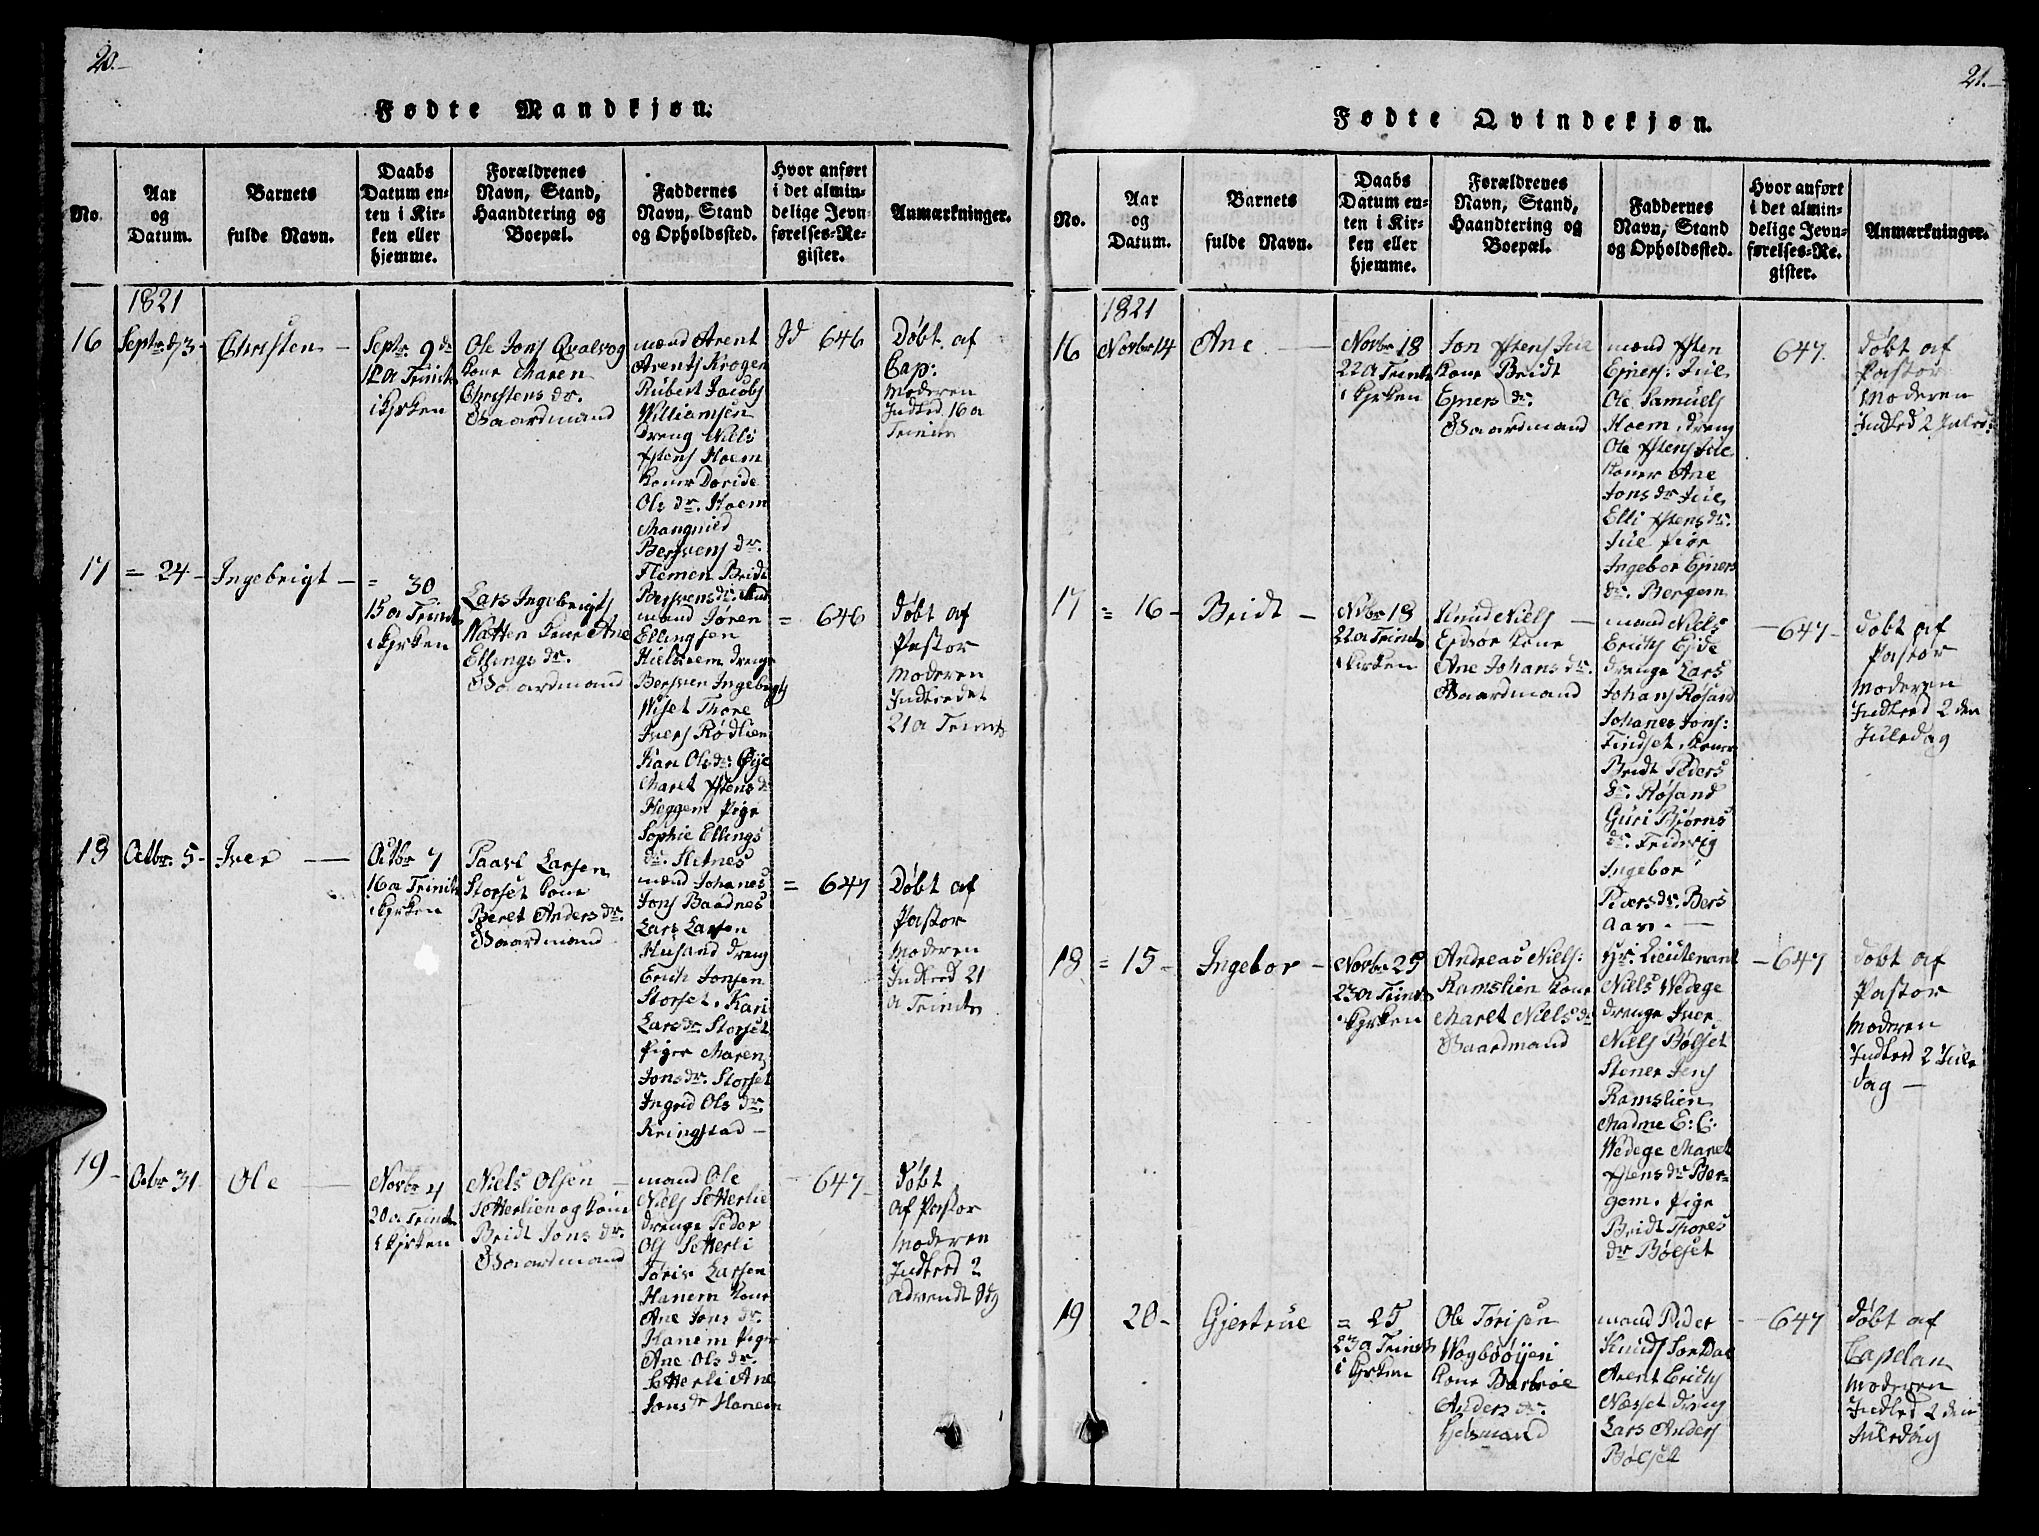 20.-
Fødte Mandkjøn.
No.
Aar
og
Datum.
Barnets
fulde Navn.
Daabs
Datum en-
ten i Kir-
ken eller
hjemme.
Forældrenes
Navn, Stand,
Haandtering og
Boepæl.
Faddernes
Navn, Stand
og Opholdssted.
Hvor anført
i det almin-
delige Jevn-
førelses-Re-
gister.
Anmærkninger.
1821
16
Septr: d 3
Christen
Septr: 9 de
12 a Trinit
i Kyrken
Ole Jons Qvalvog
kone Maren
Christens dr.
Gaardmand
mænd Arent
Arents Krogen
Rubert Jacobs
Williamsen
dreng Niels
Hoem
koner
Ols dr. Hoem
Magnild
Bersvens dr.
Flemen Bridt
Bersvens dr.
646
Døbt af
Cap:
Moderen
Indled 16 a
Trinit
17
= 24 -
Ingebrigt
= 30
15 a Trinit
i Kyrken
Lars Ingebrigts
Natten kone Ane
Ellings dr.
Gaardmand
mænd Jøren
Ellingsen
drenge
Bersven Ingebrigts
Wiset Thore
Ivers Rødlien
Kari Ols dr. Øye
Maret Ystens dr
Heggem Pige
Sophie Ellings
dr.
= 646
døbt af
Pastor
Moderen
Indledet
21 a Trinit
18
Octbr. 5 -
Iver
Octbr 7
16 a Trinit
i Kyrken
Paavl Larsen
Storset kone
Beret Anders dr.
Gaardmand
mænd Johanes
Jons Baadnes
Lars Larsen
Husand dreng
Erich Jonsen
Storset, Kari
Lars dr. Storset
Piger Maren
Jons dr. Storset
Ingrid Ols dr.
Kringstad -
= 647
Døbt af
Pastor
Moderen
Indled 21
a Trinit
19 -
Ocbr 31
Ole
Novbr 4
20 a Trinit
i Kyrken
Niels Olsen -
Setterlien og kone
Bridt Jons dr.
Gaardmand
mænd Ole
Niels Setterlie
drenge Peder
Ols Setterli
Toris Larsen
Hanem kone
Ane Jons dr.
Hanem Piger
Ane Ols dr.
Setterli Ane
Jons dr Hanem
647 -
døbt
af Pastor
Moderen
Indled 2
advendt Sdg
21.-
Fødte Qvindekjøn.
No.
Aar
og
Datum.
Barnets
fulde Navn.
Daabs
Datum en-
ten i Kir-
ken eller
hjemme.
Forældrenes
Navn, Stand,
Haandtering og
Boepæl.
Faddernes
Navn, Stand
og Opholdssted.
Hvor anført
i det almin-
delige Jevn-
førelses-Re-
gister.
Anmærkninger.
1821
16
Novbr 14
Ane
Novbr 18
22 a Trinit
i Kyrken
Jon Ystens Jul
kone Bridt
Ejners dr.
Gaardmand
mænd Ysten
Ejners: Jul
Ole Samuels
Hoem, dreng
Ole Ystens Jul
koner Ane
Jons dr Jul
Elli Ystens dr.
Jul Pige
Ingebor Ejners
dr. Bergem
647.
døbt af
Pastor
Moderen
Indled 2 Juled:
17
= 16 -
Bridt
Novbr 18
22 a Trinit
i Kirken
Knud Niels
Ejdsør kone
Ane Johans dr.
Gaardmand
mænd Niels
Erichs Ejde
drenge Lars
Johans Røsand
Johanes Jons:
Tindset, koner
Bridt Peders
dr. Røsand
Guri Biørns
dr. Fredsvig
Ingebor
Peders dr. Bers
aas. -
- 647 -
døbt af
Pastor
Moderen
Indled 2 den
Juledag
18
= 15 -
Ingebor
Novbr 25
23 a Trinit
i Kyrken
Andreas Niels:
Ramslien kone
Maret Niels dr
Gaardmand
Hr. Lieutenant
Niels Wedege
drenge Iver
Niels Bølset
Stener Jens
Ramslien
Madme E: C:
Wedege Maret
Ystens dr Ber-
gem. Pige
Bridt Thores
dr Bølset
- 647
døbt af
Pastor
Moderen
Indled 2 Jule
dag -
19
20 -
Gjertrue
= 25
23 a Trinit
i Kyrken
Ole Torisen
Wogbøöyen
kone Barbroe
Anders dr.
Huusmand
mænd Peder
Knuds Sordal
Arent Erichs
Næsset dreng
Lars Anders
Bølset
- 647
døbt af
Capelan
Moderen
Indled 2 den
Juledag